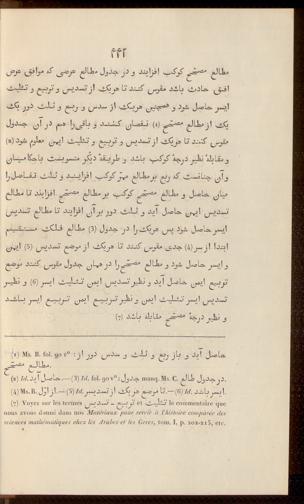 ۴۴۲
مطالع مصحح کوکب افزایند و در جدول مطالع عرضی که موافق عرض
افق حادث باشد مقوس کنند تا هریک از تسدیس و تربیع و تثلیث
ایسر حاصل شود و همچنین هریک از سدس و ربع و ثلث دور یک
یک از مطالع مصحح (1) نقصان کنند و باقیرا هم در آن جدول
مقوس کنند تا هریک از تسدیس و تربیع و تثلیث ایمن معلوم شود (2)
و مقابلهٔ نظیر درجهٔ کوکب باشد و طریقهٔ دیگر منسوبست باحکامیان
و آن چنانست که ربع بر مطالع ممر کوکب افزایند و ثلث تفاضلرا
میان حاصل و مطالع مصحح کوکب بر مطالع مصحح افزایند تا مطالع
تسدیس ایمن حاصل آید و ثلث دور بر آن افزایند تا مطالع تسدیس
ایسر حاصل شود پس هریک را در جدول (3) مطالع فلک مستقیم
ابتدا از سر (4) جدی مقوس کنند تا هریک از موضع تسدیس (5) ایمن
و ایسر حاصل شود و مطالع مصحح را در همان جدول مقوس کنند موضع
تربیع ایمن حاصل آید و نظیر تسدیس ایمن تثلیث ایسر (6) و نظیر
تسدیس ایسر تثلیث ایمن و نظیر تربیع ایمن تربیع ایسر باشد
و نظیر درجهٔ مصحح مقابله باشد (7)
(1) Ms. B. fol. 90 vº : حاصل آید و باز ربع و ثلث و سدس دور از
مطالع مصحح.
(2) Id. حاصل آید.—(3) Id. fol. 90 vº ; جدول manq. Ms. C. در جدول طالع.
(4) Ms. B. از اوّل.—(5) Id. تا موضع هریک از تسدیس.—(6) Id. ایسر باشد.
(7) Voyez sur les termes تسدیس – تربیع et تثلیث le commentaire que
nous avons donné dans nos Matériaux pour servir à l'histoire comparée des
sciences mathématiques chez les Arabes et les Grecs, tom. I, p. 202-215, etc.